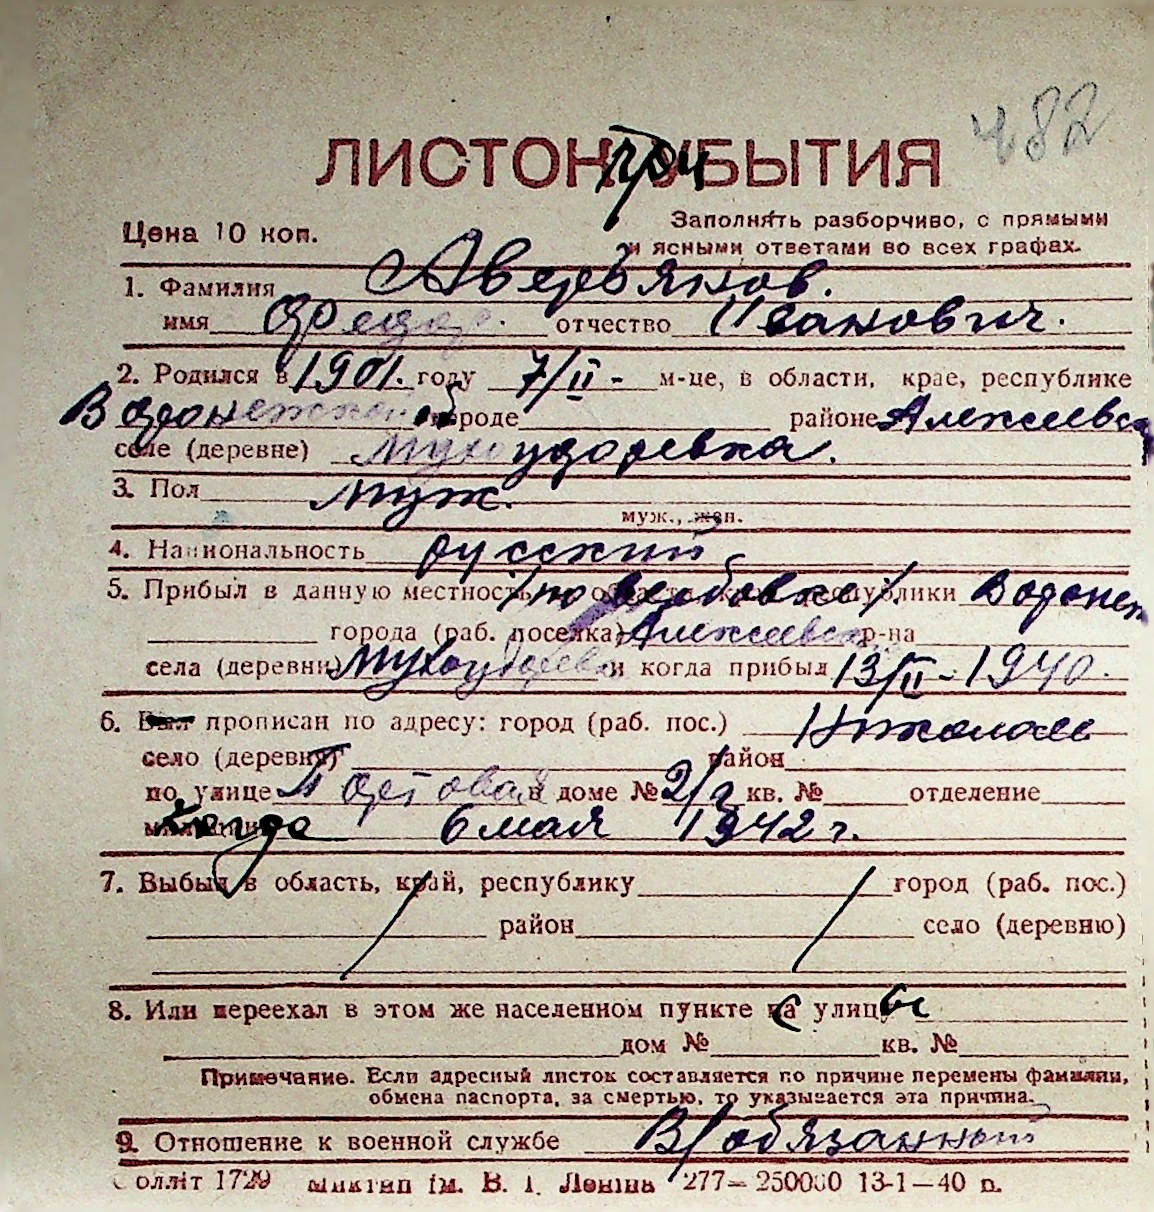 482
ЛИСТОК УБЫТИЯ
при
Цена 10 коп.
Заполнять разборчиво, с прямыми
и ясными ответами во всех графах.
1. Фамилия Аверьянов.
имя Федор. отчество Иванович.
2. Родился в 1901. году 7/II - м-це, в области, крае, республике
Воронежской городе районе Алексеевск
селе (деревне) Мухоудоревка.
3. Пол муж.
муж., жен.
4. Национальность русский
5. Прибыл в данную местность /по вербовке/. республики Воронеж
города (раб. поселка) Алексеевск р-на
села (деревни) Мухоудоревка и когда прибыл 13/II - 1940.
6. Был прописан по адресу: город (раб. пос.) Николаев
село (деревня) район
по улице Портовая в доме № 2/2 кв. № отделение
милиции Когда 6 мая 1942 г.
7. Выбыл в область, край, республику город (раб. пос.)
район село (деревню)
8. Или переехал в этом же населенном пункте на с улицы
дом № кв. №
Примечание. Если адресный листок составляется по причине перемены фамилии,
обмена паспорта, за смертью, то указывается эта причина.
9. Отношение к военной службе В/обязанный
оллiт 1729 ім. В. І. Леніна 277—250000 13-1—40 р.